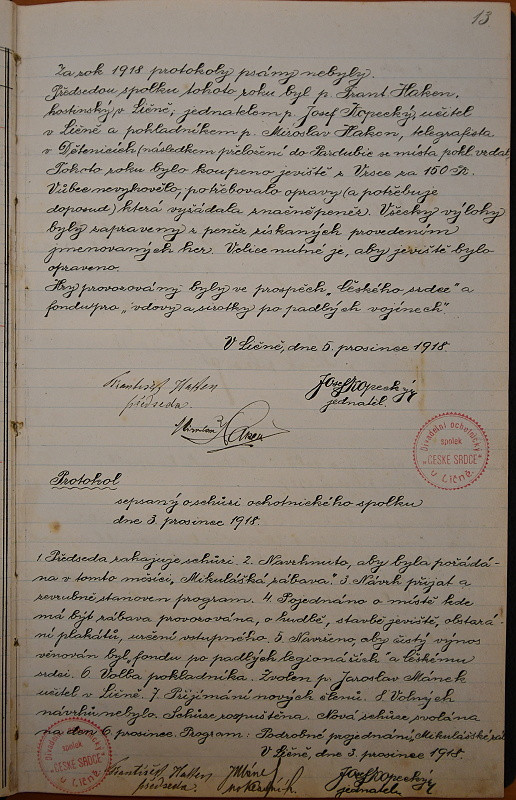 13
Za rok 1918 protokoly psány nebyly.
Předsedou spolku tohoto roku byl p. Frant Haken,
hostinský v Ličně; jednatelem p. Josef Kopecký, učitel
v Ličně a pokladníkem p. Miroslav Haken, telegrafista
v Dětenicích (následkem přeložení do Pardubic se místa pokl. vzdal)
Tohoto roku bylo koupeno jeviště z Vrsce za 150 K.
Vůbec nevyhovělo, potřebovalo opravy (a potřebuje
doposud) která vyžádala značně peněz. Všechny výlohy
byly zapraveny z peněz získaných provedením
jmenovaných her. Velice nutné je, aby jeviště bylo
opraveno.
Hry provozovány byly ve prospěch „Českého srdce" a
fondu pro „vdovy a sirotky po padlých vojínech".
V Ličně, dne 5. prosince 1918.
František Haken
předseda.
Josef Kopecký
jednatel.
Haken
Divadelní ochotnický
spolek
"ČESKÉ SRDCE"
v Ličně.
Protokol
sepsaný o schůzi ochotnického spolku
dne 3. prosince 1918.
1. Předseda zahajuje schůzi. 2. Navrhnuto, aby byla pořádá-
na v tomto měsíci „Mikulášská zábava." 3. Návrh přijat a
zevrubně stanoven program. 4. Pojednáno o místě kde
má být zábava provozována, o hudbě, stavbě jeviště, obstará-
ní plakátů, určení vstupného. 5. Navrženo, aby čistý výnos
věnován byl „fondu po padlých legionářích" a Českému
srdci. 6. Volba pokladníka. Zvolen p. Jaroslav Mánek
učitel v Ličně. 7. Přijímání nových členů. 8. Volných
návrhů nebylo. Schůze rozpuštěna. Nová schůze svolána
na den 6. prosince. Program: Podrobné projednání „Mikulášské záb.
V Ličně, dne 3. prosince 1918.
Divadelní ochotnický
spolek
"ČESKÉ SRDCE"
v Ličně.
František Haken
předseda.
JMánek
pokladník.
Josef Kopecký
jednatel.